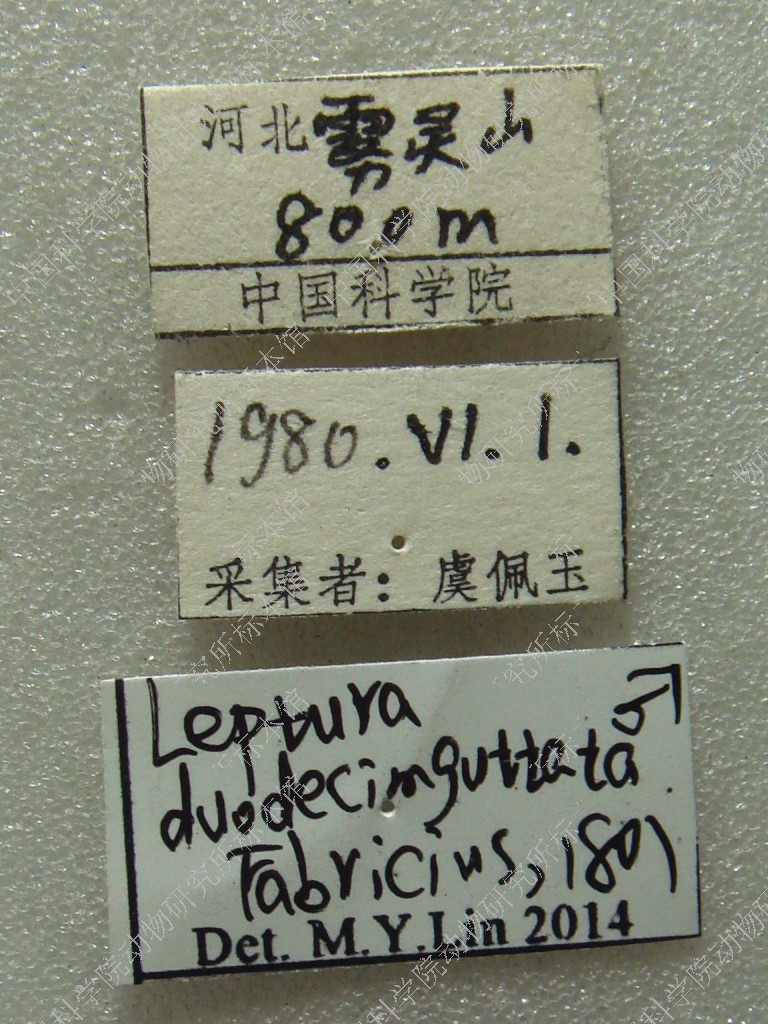 河北雾灵山
800m
中国科学院
1980.VI.1.
采集者：虞佩玉
Leptura ♂
duodecimguttata
Fabricius, 1801
Det. M.Y.Lin 2014